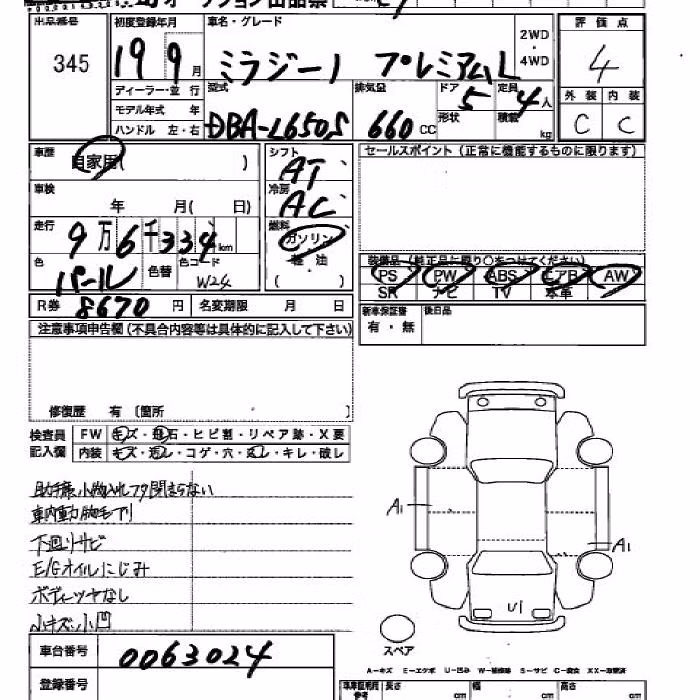 オークション出品票
出品番号 初度登録年月 車名・グレード 評価点
345 19 9月 ミラジーノ プレミアムL 2WD・4WD 4
ディーラー・並 行 型式 排気量 ドア 定員 外装 内装
モデル年式 年 5 4人
ハンドル 左・右 DBA-L650S 660CC 形状 積載 kg C C
車歴 自家用( ) シフト AT セールスポイント(正常に機能するものに限ります)
車検 年 月( 日) 冷房 AC
走行 9万6千334km 燃料 ガソリン
色 パール 色替 色コード W24 軽油 ( )
装備品(純正品に限り○をつけてください)
PS PW ABS エアB AW
SR ナビ TV 本革
R券 8670円 名変期限 月 日 新車保証書 後日品
有・無
注意事項申告欄(不具合内容等は具体的に記入して下さい)
修復歴 有 〔箇所 〕
検査員 FW キズ・飛石・ヒビ割・リペア跡・X要
記入欄 内装 キズ・汚レ・コゲ・穴・スレ・キレ・破レ
助手席小物入れフタ閉まらない
車内動物毛アリ
下廻りサビ
E/Gオイルにじみ
ボディーツヤなし
小キズ・小凹
A1
A1
U1
スペア
車台番号 0063024
A−キズ E−エクボ U−凹み W−補修跡 S−サビ C−腐食 XX−交換済
登録番号 車庫証明用参考 長さ cm 幅 cm 高さ cm